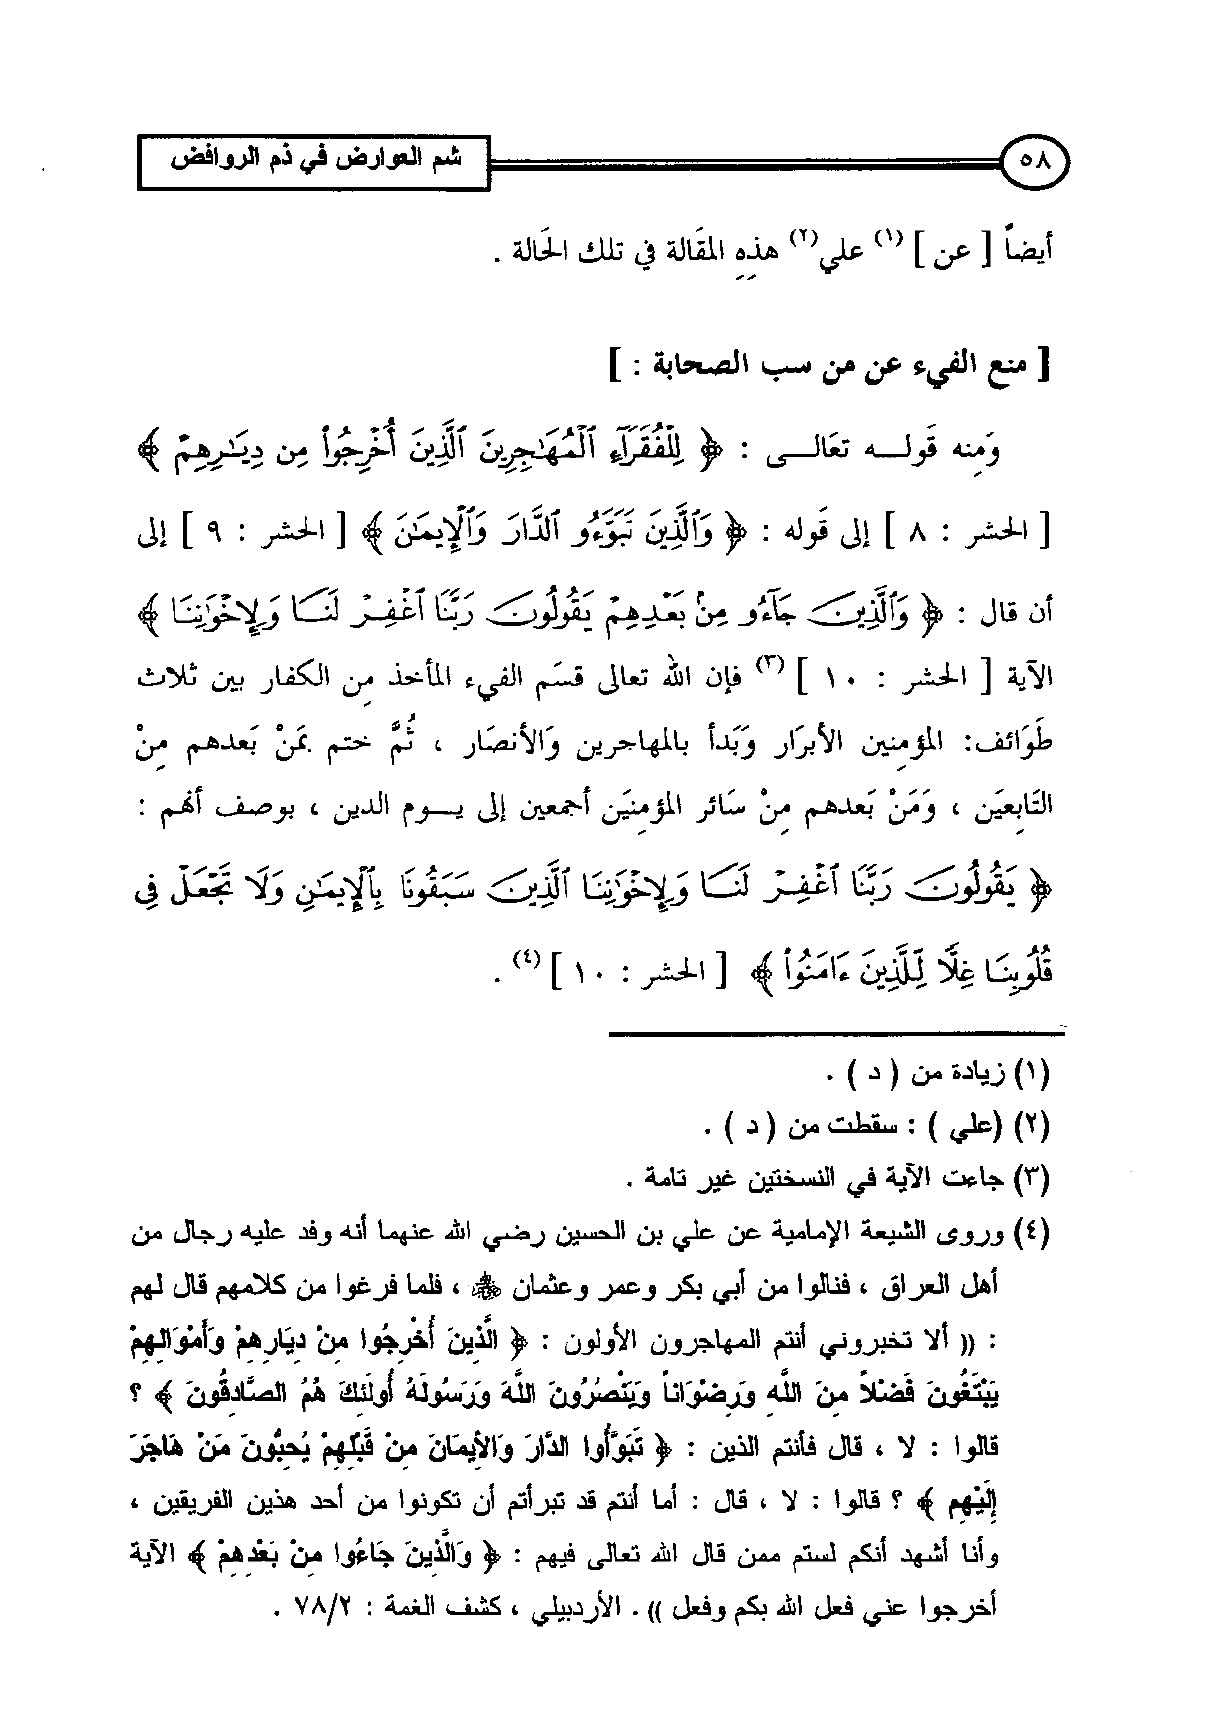 ٥٨
شم العوارض في ذم الروافض
أيضاً [ عن ] (١) علي(٢) هذِهِ المقَالة في تلك الحَالة .
[ منع الفيء عن من سب الصحابة : ]
وَمِنه قَولـــه تعَالـــى : ﴿ لِلْفُقَرَآءِ ٱلْمُهَـٰجِرِينَ ٱلَّذِينَ أُخْرِجُوا۟ مِن دِيَـٰرِهِمْ ﴾
[ الحشر : ٨ ] إلى قَوله : ﴿ وَٱلَّذِينَ تَبَوَّءُو ٱلدَّارَ وَٱلْإِيمَـٰنَ ﴾ [ الحشر : ٩ ] إلى
أن قال : ﴿ وَٱلَّذِينَ جَآءُو مِنۢ بَعْدِهِمْ يَقُولُونَ رَبَّنَا ٱغْفِرْ لَنَا وَلِإِخْوَٰنِنَا ﴾
الآية [ الحشر : ١٠ ] (٣) فإن الله تعالى قسَم الفيء المأخذ مِن الكفار بين ثلاث
طوَائف: المؤمِنين الأبرَار وَبَدأ بالمهاجرين وَالأنصَار ، ثُمَّ ختم بمَنْ بَعدهم مِنْ
التَابعِيَن ، وَمَنْ بَعدهم مِنْ سَائر المؤمِنيَن أجمعين إلى يـــوم الدين ، بوصف أنهم :
﴿ يَقُولُونَ رَبَّنَا ٱغْفِرْ لَنَا وَلِإِخْوَٰنِنَا ٱلَّذِينَ سَبَقُونَا بِٱلْإِيمَـٰنِ وَلَا تَجْعَلْ فِى
قُلُوبِنَا غِلًّا لِّلَّذِينَ ءَامَنُوا۟ ﴾ [ الحشر : ١٠ ] (٤) .
(١) زيادة من ( د ) .
(٢) (علي ) : سقطت من ( د ) .
(٣) جاءت الآية في النسختين غير تامة .
(٤) وروى الشيعة الإمامية عن علي بن الحسين رضي الله عنهما أنه وفد عليه رجال من
أهل العراق ، فنالوا من أبي بكر وعمر وعثمان ﷺ ، فلما فرغوا من كلامهم قال لهم
: (( ألا تخبروني أنتم المهاجرون الأولون : ﴿ الَّذِينَ أُخْرِجُوا مِنْ دِيَارِهِمْ وَأَمْوَالِهِمْ
يَبْتَغُونَ فَضْلاً مِنَ اللَّهِ وَرِضْوَاناً وَيَنْصُرُونَ اللَّهَ وَرَسُولَهُ أُولَئِكَ هُمُ الصَّادِقُونَ ﴾ ؟
قالوا : لا ، قال فأنتم الذين : ﴿ تَبَوَّأُوا الدَّارَ وَالأِيمَانَ مِنْ قَبْلِهِمْ يُحِبُّونَ مَنْ هَاجَرَ
إِلَيْهِم ﴾ ؟ قالوا : لا ، قال : أما أنتم قد تبرأتم أن تكونوا من أحد هذين الفريقين ،
وأنا أشهد أنكم لستم ممن قال الله تعالى فيهم : ﴿ وَالَّذِينَ جَاءُوا مِنْ بَعْدِهِمْ ﴾ الآية
أخرجوا عني فعل الله بكم وفعل )) . الأردبيلي ، كشف الغمة : ٧٨/٢ .